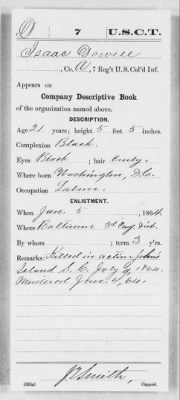 D 7 U.S.C.T.
Isaac Dowell
, Co. A, 7 Reg't U.S. Col'd Inf.
Appears on
Company Descriptive Book
of the organization named above.
DESCRIPTION.
Age 21 years; height 5 feet 5 inches.
Complexion Black
Eyes Black ; hair Curly.
Where born Washington, D.C.
Occupation
ENLISTMENT.
When Jan. 5 , 1864.
Where Baltimore 3d Cong. Dist.
By whom ; term 3 y'rs.
Remarks: Killed in action John's
Island S.C. July 9, 1864.
Mustered Jan. 5, 64.
J. Smith,
Copyist.